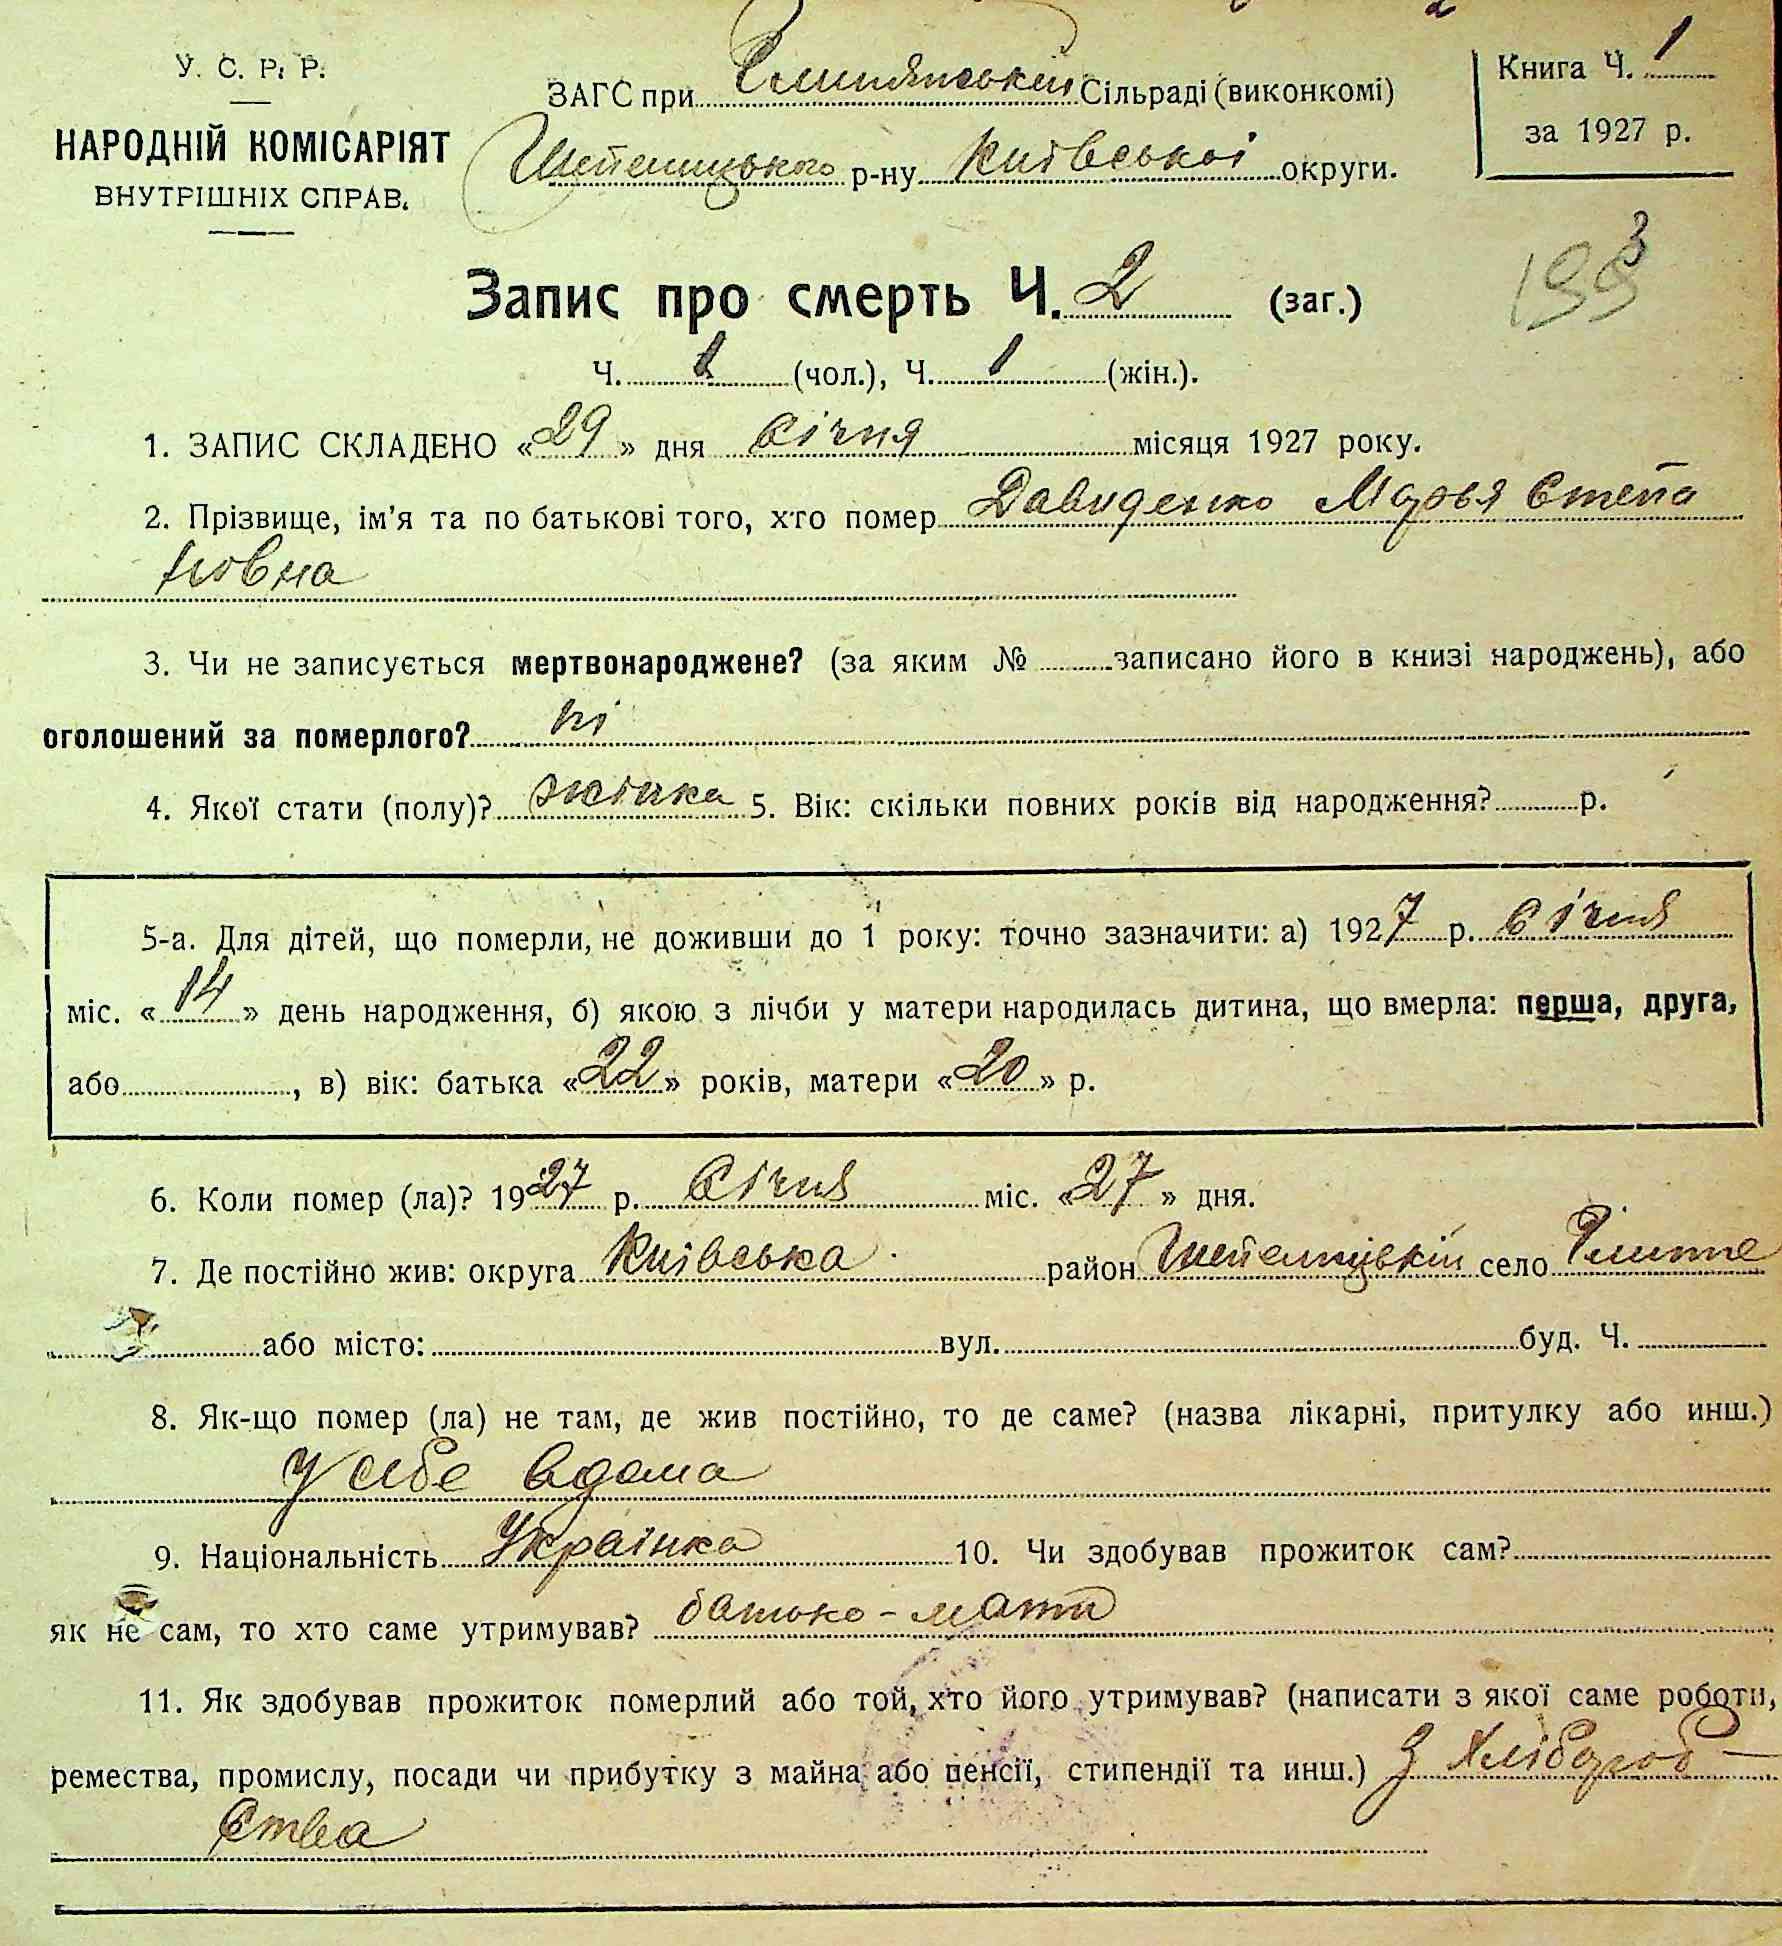 У. С. Р. Р.
НАРОДНІЙ КОМІСАРІЯТ
ВНУТРІШНІХ СПРАВ.
ЗАГС при Глинянській Сільраді (виконкомі)
Шепелицького р-ну Київської округи.
Книга Ч. 1
за 1927 р.
193
Запис про смерть Ч. 2 (заг.)
Ч. 1 (чол.), Ч. 1 (жін.).
1. ЗАПИС СКЛАДЕНО «29» дня Січня місяця 1927 року.
2. Прізвище, ім'я та по батькові того, хто помер Давиденко Марья Степа
новна
3. Чи не записується мертвонароджене? (за яким № записано його в книзі народжень), або
оголошений за померлого? ні
4. Якої стати (полу)? жінка 5. Вік: скільки повних років від народження? р.
5-а. Для дітей, що померли, не доживши до 1 року: точно зазначити: а) 1927 р. Січня
міс. «14» день народження, б) якою з лічби у матери народилась дитина, що вмерла: перша, друга,
або , в) вік: батька «22» років, матери «20» р.
6. Коли помер (ла)? 1927 р. Січня міс. «27» дня.
7. Де постійно жив: округа Київська район Шепелицькій село
або місто: вул. буд. Ч.
8. Як-що помер (ла) не там, де жив постійно, то де саме? (назва лікарні, притулку або инш.)
У себе вдома
9. Національність Українка 10. Чи здобував прожиток сам?
як не сам, то хто саме утримував? батько - мати
11. Як здобував прожиток померлий або той, хто його утримував? (написати з якої саме роботи,
ремества, промислу, посади чи прибутку з майна або пенсії, стипендії та инш.) З Хлібороб-
ства